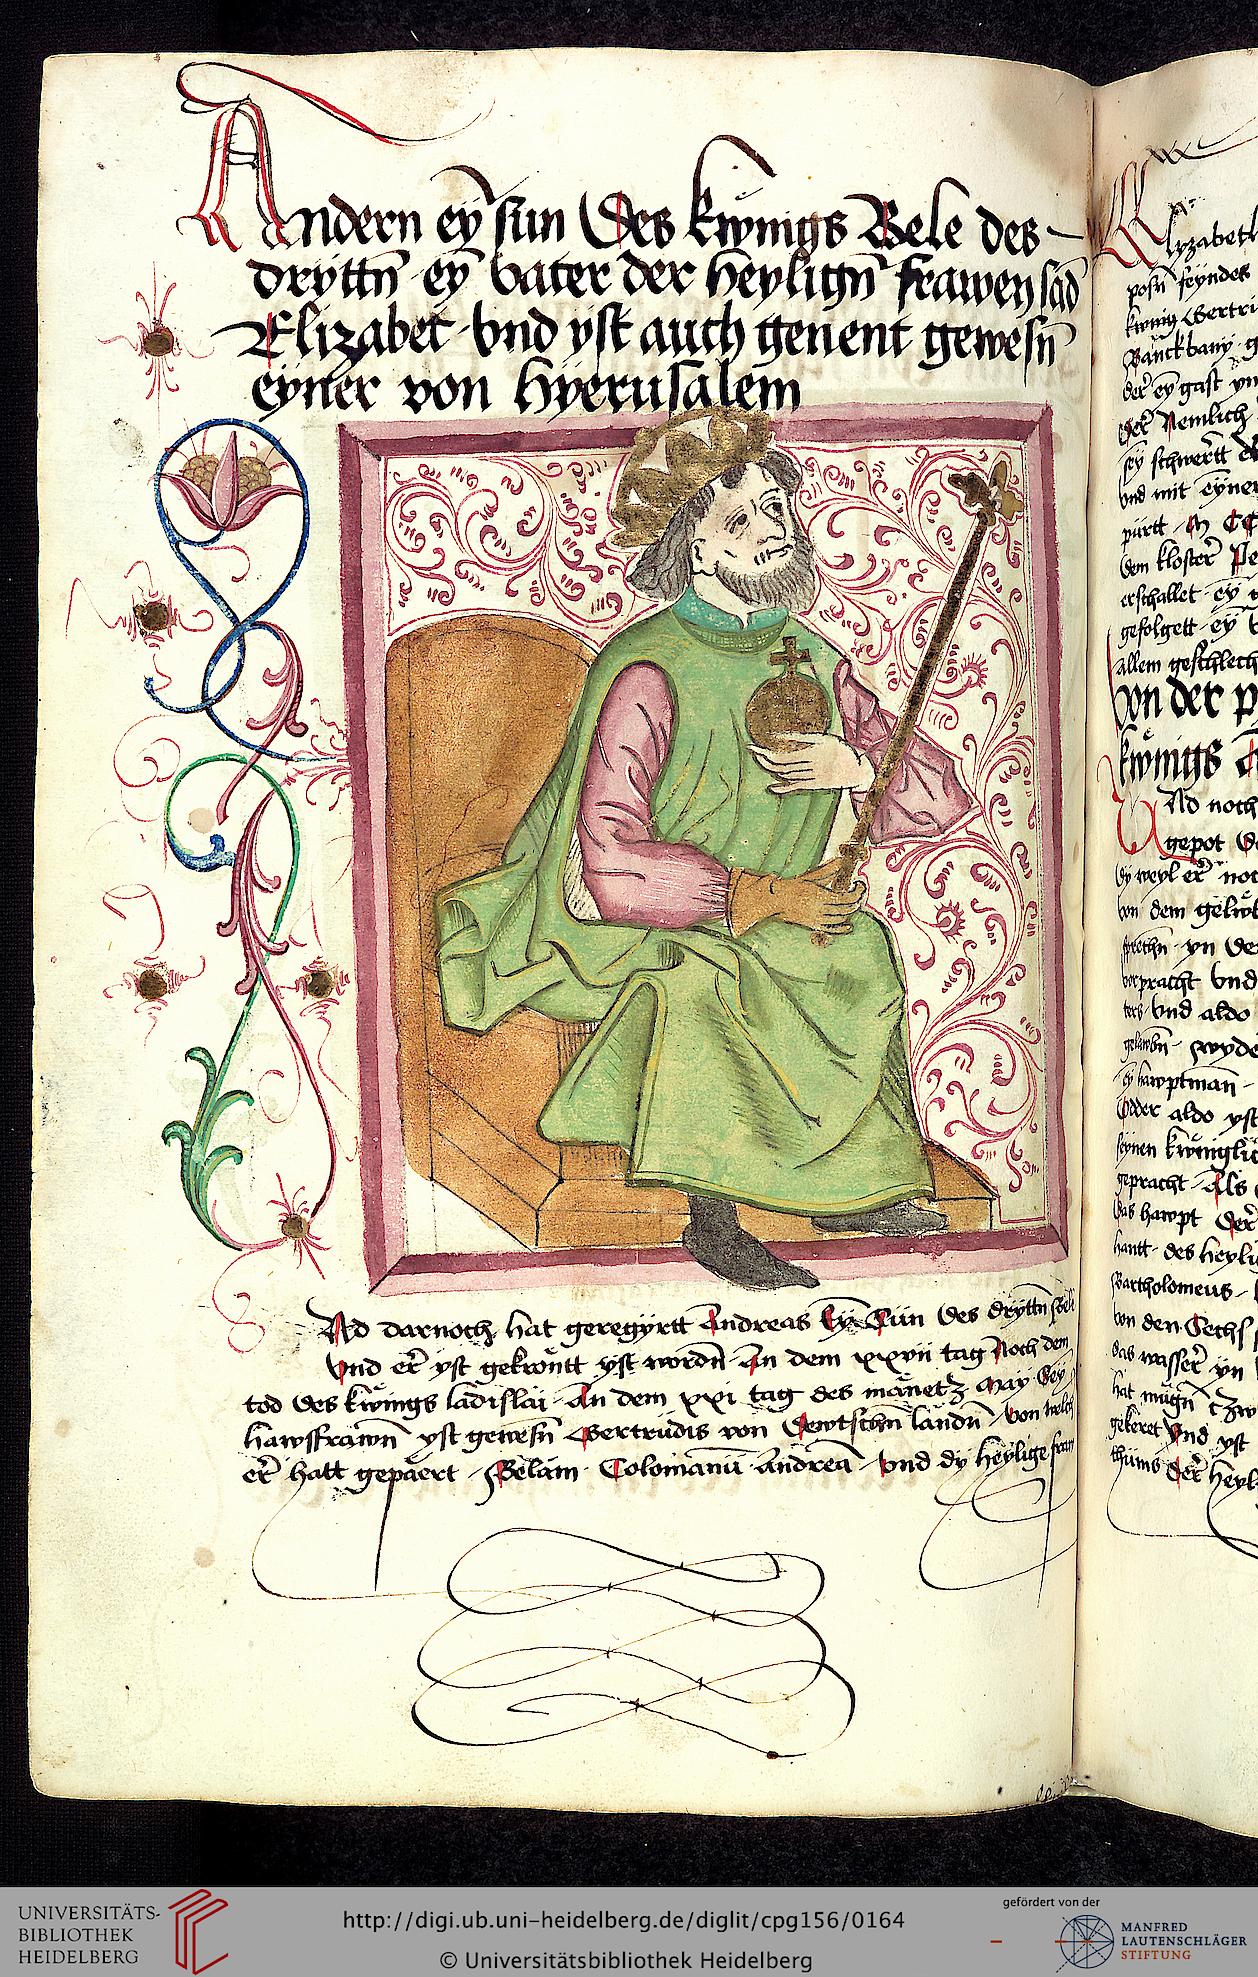 Andern eÿ sun des kwnigs Bele des
dryttn̄ eȳ vater der heylign̄ frawen san̄d
Elizabet vnd yst auch genent gewesn̄
eyner von hyerusalem
Nd darnoch hat geregyrtt Andreas Ey Sun des dryttn̄ Bele
vnd er yst gekrontt yst wordn̄ An dem xxvii tag Noch dem
tod des kwnigs ladislai An dem xxi tag des manetz May Sey
hawsfrawn̄ yst gewesn̄ Gertrudis von Dewtschn̄ landn̄ von welch
er hatt gepaert Belam Colomanū andreā vnd dy heylige fraw
Elyzabeth
posn̄ feyndes
kwnig Gertru
Banckbany
der ey gast
Nemlich
sey schwertt
vnd mit eyner
dem kloster
erschallet ey
gefolgett ey
allem geschlech
von der
kwnigs
Nd noch
gepot
dy weyl er
von dem
vnd
vnd aldo
ey hawptman
Odder aldo yst
seynen kwniglic
gepracht Als
das hawpt der
hantt des heyli
Bartholomeus
von den Sechs
das wasser yn
hat mugn̄
gekeret Vnd yst
thums der heyl
UNIVERSITÄTS-
BIBLIOTHEK
HEIDELBERG
http://digi.ub.uni-heidelberg.de/diglit/cpg156/0164
© Universitätsbibliothek Heidelberg
gefördert von der
MANFRED
LAUTENSCHLÄGER
STIFTUNG